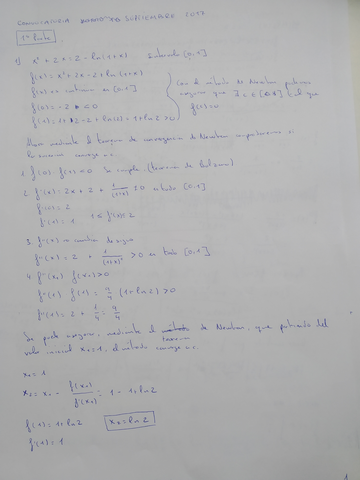 CONVOCATORIA SEPTIEMBRE 2017
1ª Parte
1) x² + 2x = 2 - ln(1+x) Intervalo [0,1]
f(x) = x² + 2x - 2 + ln(1+x)
f(x) es continua en [0,1]
f(0) = -2 < 0
f(1) = 1 + 2 - 2 + ln(2) = 1 + ln2 > 0
Con el método de Newton podemos
asegurar que ∃ c ∈ [0,1] tal que
f(c) = 0
mediante el teorema de convergencia de Newton comprobaremos si
converge a c.
1. f(0) · f(1) < 0 Se cumple. (teorema de Bolzano)
2. f'(x) = 2x + 2 + 1/(1+x) ≠ 0 en todo [0,1]
f'(0) = 2
f'(1) = 1
3. f''(x) no cambia de signo
f''(x) = 2 + 1/(1+x)² > 0 en todo [0,1]
4. f''(x₀) f(x₀) > 0
f''(1) f(1) = 9/4 (1+ln2) > 0
f''(1) = 2 + 1/4 = 9/4
Se puede asegurar, mediante el de Newton, que partiendo del
teorema
valor inicial x₀ = 1, el método converge a c.
x₁ = 1
x₂ = x₁ - f(x₁)/f'(x₁) = 1 - 1+ln2
f(1) = 1+ln2
x₂ = ln2
f'(1) = 1
1